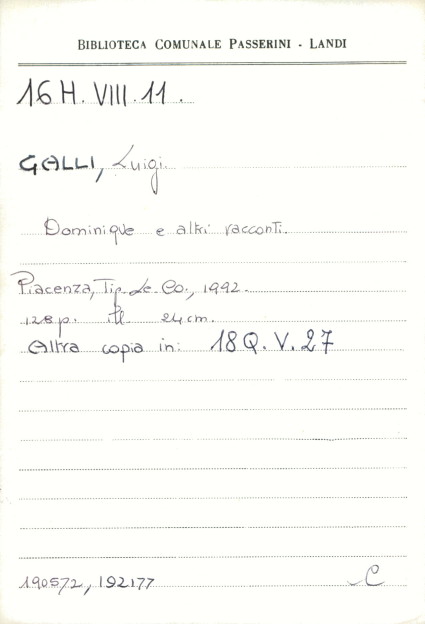 BIBLIOTECA COMUNALE PASSERINI - LANDI
16 H. VIII. 11.
GALLI, Luigi
Dominique e altri racconti.
Piacenza, Tip. Le. Co., 1992.
128 p. ill. 24 cm.
Altra copia in: 18 Q. V. 27
190572, 192177 C